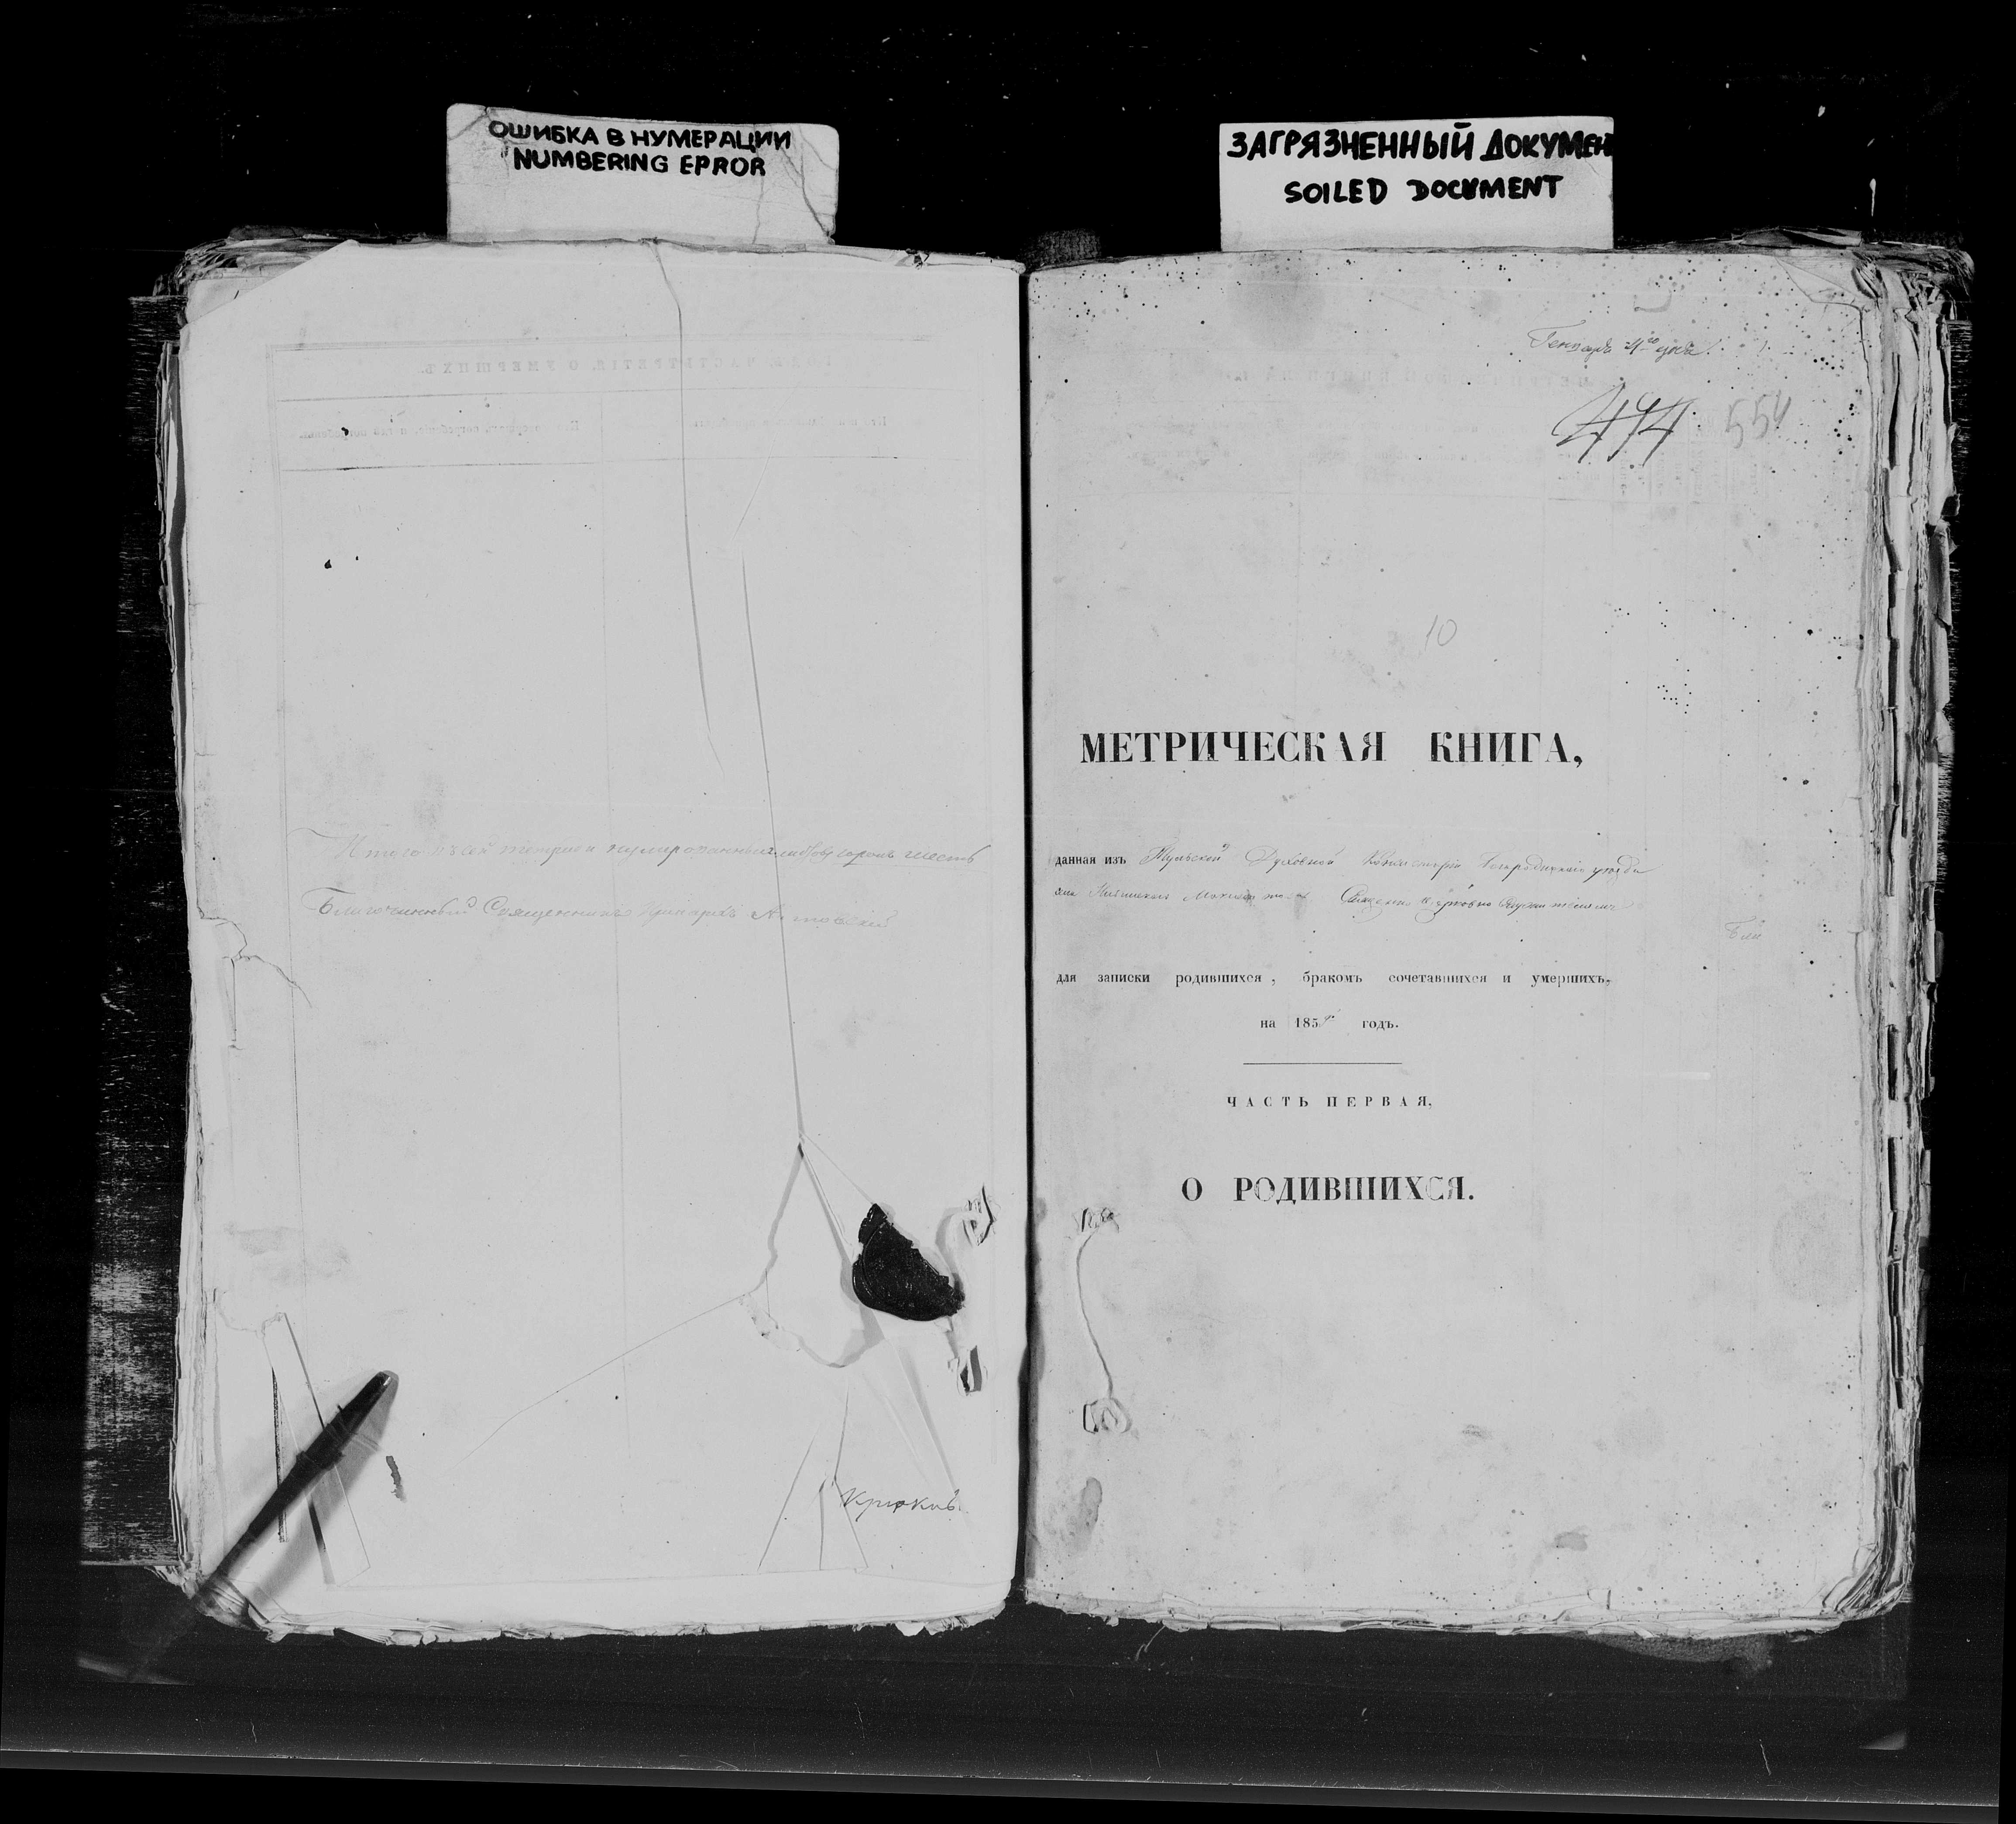 ОШИБКА В НУМЕРАЦИИ
NUMBERING ЕРROR
ЗАГРЯЗНЕННЫЙ ДОКУМЕН
SOILED DOCUMENT
Итого въ сей тетради нумерованныхъ листовъ сорокъ шесть
Благочинный Священникъ
Крюковъ
554
10
МЕТРИЧЕСКАЯ КНИГА,
данная изъ Тульской Духовной Консисторіи Богородицкаго уѣзда
для записки родившихся, бракомъ сочетавшихся и умершихъ,
на 185 годъ.
ЧАСТЬ ПЕРВАЯ,
О РОДИВШИХСЯ.